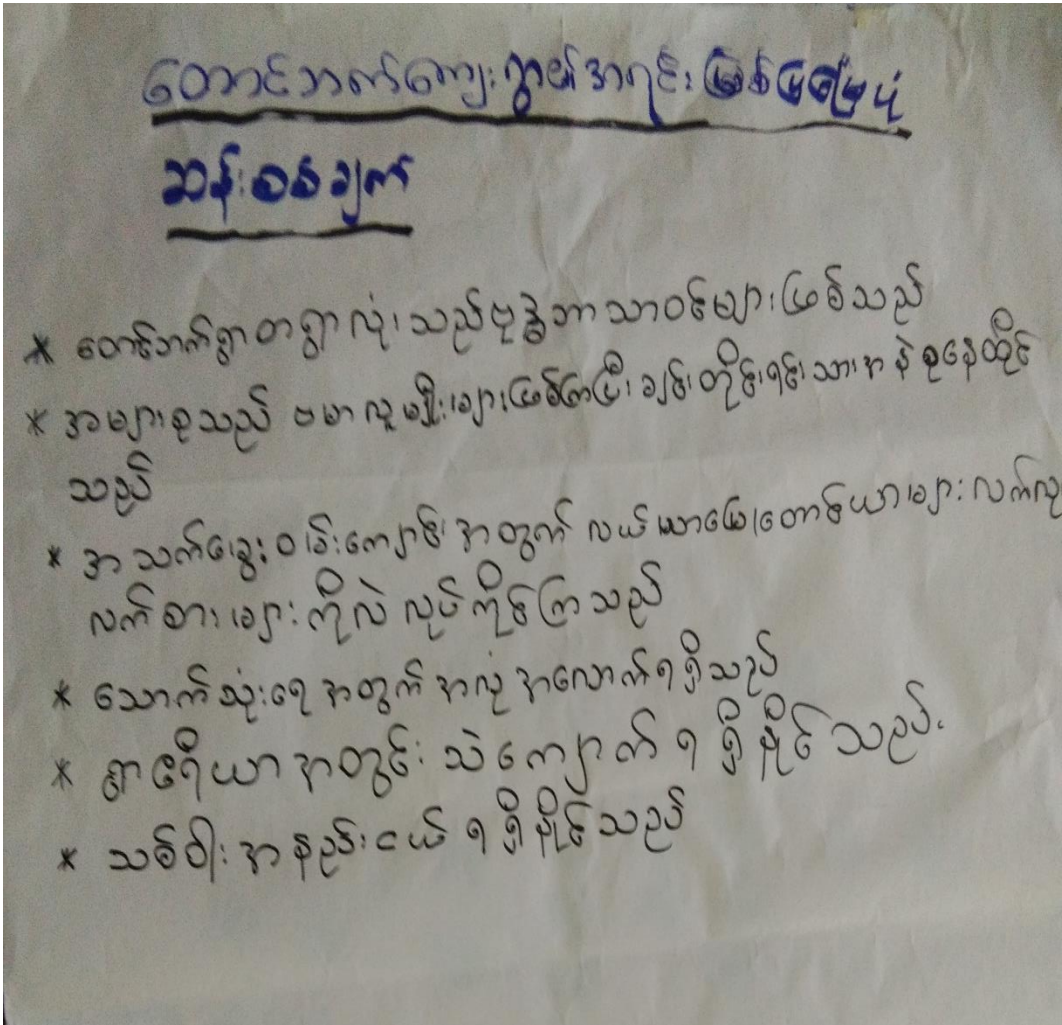 တောင်ဘက်ကျေးရွာ၏အရင်းမြစ်ပြမြေပုံ
ဆန်းစစ်ချက်
* တောင်ဘက်ရွာတရွာလုံးသည်ဗုဒ္ဓဘာသာဝင်များဖြစ်သည်
* အများစုသည် ဗမာလူမျိုးများဖြစ်ကြပြီး ချင်းတိုင်းရင်းသားအနဲစုနေထိုင်
သည်
* အသက်မွေးဝမ်းကျောင်းအတွက် လယ်ယာမြေ၊တောင်ယာများ လက်လု
လက်စားများကိုလဲ လုပ်ကိုင်ကြသည်
* သောက်သုံးရေအတွက် အလုံအလောက်ရရှိသည်
* ရွာဧရိယာအတွင်း သဲကျောက်ရရှိနိုင်သည်.
* သစ်ဝါးအနည်းငယ်ရရှိနိုင်သည်